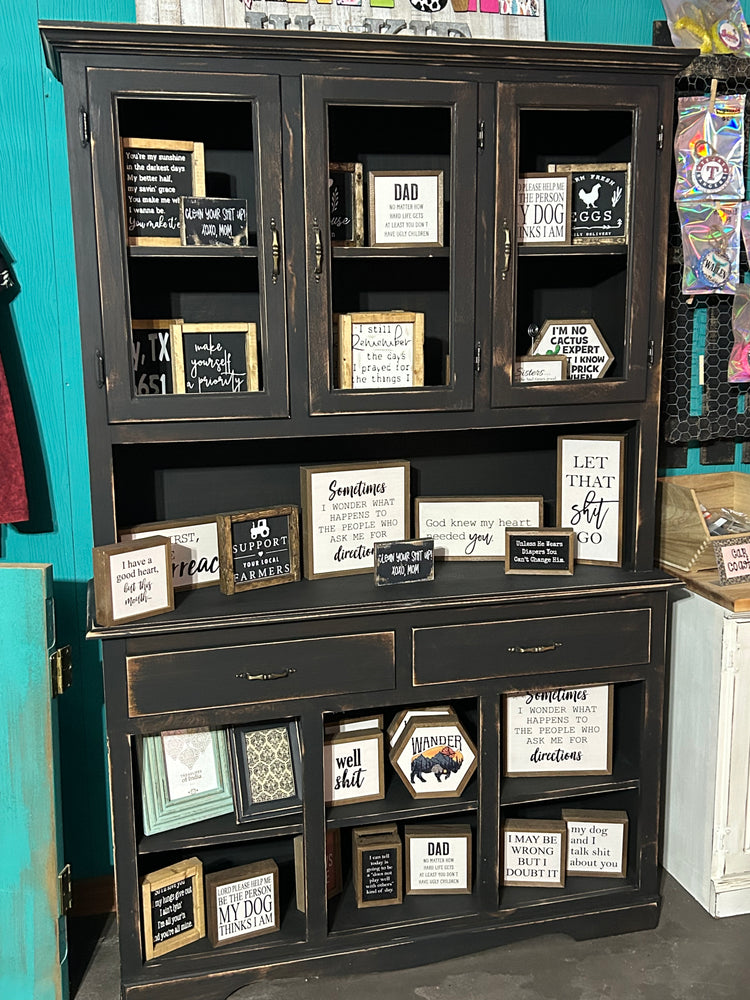 You're my sunshine
in the darkest days
My better half,
my savin' grace
You make me w
I wanna be.
You make it
CLEAN YOUR SH!T UP!
XOXO, MOM
DAD
NO MATTER HOW
HARD LIFE GETS
AT LEAST YOU DON'T
HAVE UGLY CHILDREN
D PLEASE HELP ME
THE PERSON
Y DOG
INKS I AM
RM FRESH
EGGS
LY DELIVERY
Y, TX
651
make
yourself
a priority
I still
Remember
the days
I prayed for
the things I
Sisters...
I'M NO
CACTUS
EXPERT
T I KNOW
PRICK
WHEN
I have a
good heart,
but this
mouth...
RST,
SUPPORT
YOUR LOCAL
FARMERS
Sometimes
I WONDER WHAT
HAPPENS TO
THE PEOPLE WHO
ASK ME FOR
directions
CLEAN YOUR SH!T UP!
XOXO, MOM
God knew my heart
needed you.
Unless He Wears
Diapers You
Can't Change Him
LET
THAT
shit
GO
well
shit
WANDER
Sometimes
I WONDER WHAT
HAPPENS TO
THE PEOPLE WHO
ASK ME FOR
directions
my lungs give out
I ain't lyin'
I'm all your'n
nd you're all mine.
LORD PLEASE HELP ME
BE THE PERSON
MY DOG
THINKS I AM
I can tell
today is
going to be
a "does not
play well
with others"
kind of day
DAD
NO MATTER HOW
HARD LIFE GETS
AT LEAST YOU DON'T
HAVE UGLY CHILDREN
I MAY BE
WRONG
BUT I
DOUBT IT
my dog and
I talk shit
about you